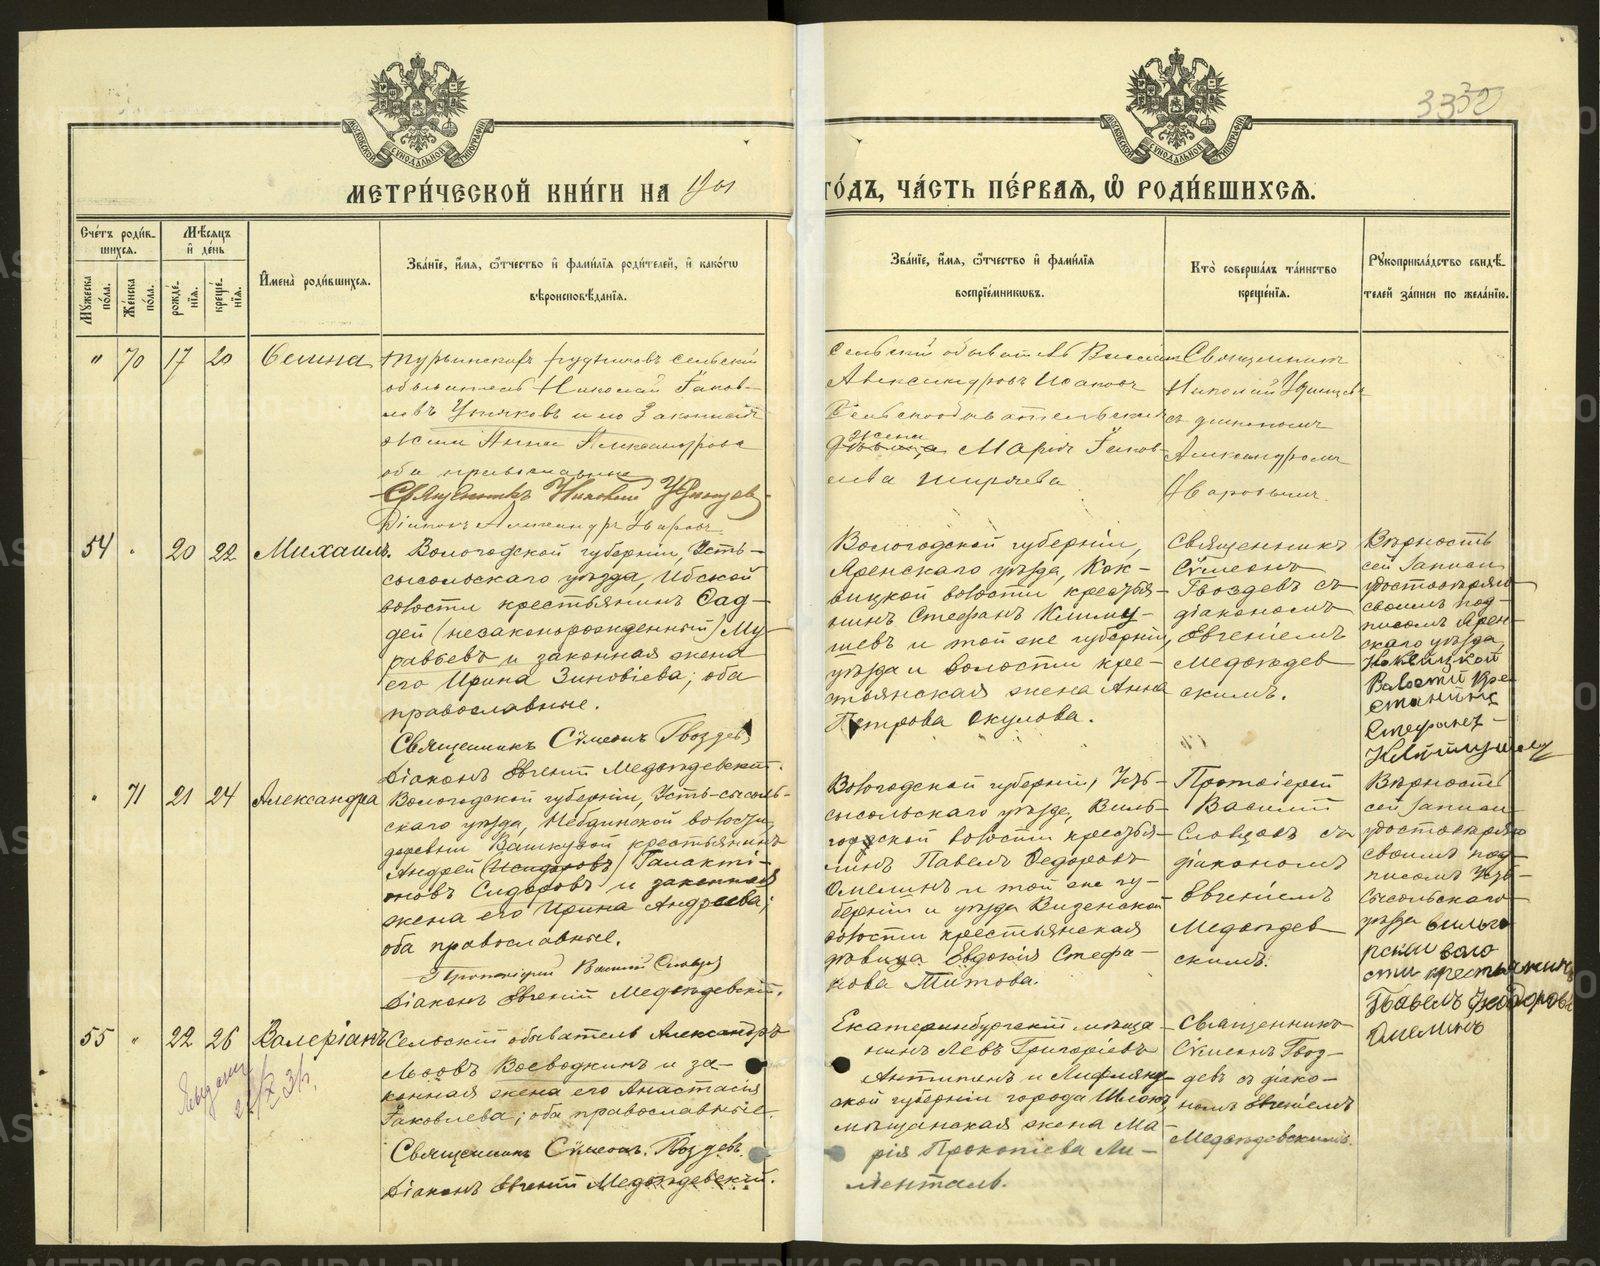 3332
МОСКОВСКОЙ СѴНОДАЛЬНОЙ ТИПОГРАФІИ
МОСКОВСКОЙ СѴНОДАЛЬНОЙ ТИПОГРАФІИ
МЕТРИ́ЧЕСКОЙ КНИ́ГИ НА 1901
ГО́ДЪ, ЧА́СТЬ ПЕ́РВАѦ, Ѡ РОДИ́ВШИХСѦ.
Сче́тъ роди́в-
шихсѧ.
Мꙋ́жеска по́ла.
Же́нска по́ла.
Мѣ́сѧцъ
и҆ де́нь
рожде́-
нїѧ.
креще́-
нїѧ.
И҆мена̀ роди́вшихсѧ.
Зва́нїе, и҆́мѧ, ѻ҆́тчество и҆ фами́лїѧ роди́телей, и҆ како́гѡ
вѣроисповѣ́данїѧ.
Зва́нїе, и҆́мѧ, ѻ҆́тчество и҆ фами́лїѧ
воспрїе́мникѡвъ.
Кто̀ соверша́лъ та́инство
креще́нїѧ.
Рꙋкоприкла́дство свидѣ́-
телей за́писи по жела́нїю.
" 70 17 20
Турьинскихъ рудниковъ сельскій
обыватель Николай Іаков-
левъ и его законная
жена Анна Александрова
оба православные
Священникъ Николай
Діаконъ Александръ Уваровъ
Сельскій обыватель
Александровъ
жена
дѣвица Марія Іаков-
лева
Священникъ
Николай
съ діакономъ
Александромъ
Уваровымъ.
54 " 20 22 Михаилъ.
Вологодской губерніи, Усть-
сысольскаго уѣзда, Ибской
волости крестьянинъ Фад-
дей (незаконорожденный) Му-
равьевъ и законная жена
его Ирина Зиновіева; оба
православные.
Священникъ Сѵмеонъ Гвоздевъ
Діаконъ Евгеній Медвѣдевскій.
Вологодской губерніи,
Яренскаго уѣзда, Кок-
вицкой волости крестья-
нинъ Стефанъ Климу-
шевъ и той же губерніи,
уѣзда и волости кре-
стьянская жена Анна
Петрова Окулова.
Священникъ
Сѵмеонъ
Гвоздевъ съ
діакономъ
Евгеніемъ
Медвѣдев-
скимъ.
Вѣрность
сей записи
удостовѣряю
своимъ под-
писомъ Ярен-
скаго уѣзда,
Коквицкой
Волости Кре-
Стефанъ
71 21 24 Александра
Вологодской губерніи, Усть-сысоль-
скаго уѣзда, Небдинской волости,
деревни крестьянинъ
Андрей (Исидоровъ) Галакті-
оновъ Сидоровъ и законная
жена его Ирина Андреева;
оба православные.
Протоіерей Василій Словцовъ
Діаконъ Евгеній Медвѣдевскій.
Вологодской губерніи, Усть-
сысольскаго уѣзда, Виль-
горской волости крестья-
нинъ Павелъ Федоровъ
Омелинъ и той же гу-
берніи и уѣзда Визенской
волости крестьянская
дѣвица Евдокія Стефа-
нова Титова.
Протоіерей
Василій
Словцовъ съ
діакономъ
Евгеніемъ
Медвѣдев-
скимъ.
Вѣрность
сей записи
удостовѣряю
своимъ под-
писомъ Усть-
сысольскаго
уѣзда вильго
рской воло
сти крестьянинъ
Павелъ Феодоровъ
Омелинъ
55 " 22 26 Валеріанъ
Сельскій обыватель Александръ
Львовъ Воеводкинъ и за-
конная жена его Анастасія
Іаковлева; оба православные.
Священникъ Сѵмеонъ Гвоздевъ.
Діаконъ Евгеній Медвѣдевскій.
Екатеринбургскій мѣща-
нинъ Левъ Григоріевъ
Антипинъ и Лифлянд-
ской губерніи города Шлокъ
мѣщанская жена Ма-
рія Прокопіева Ли-
Священникъ
Сѵмеонъ Гвоз-
девъ съ діако-
номъ Евгеніемъ
Медвѣдевскимъ.